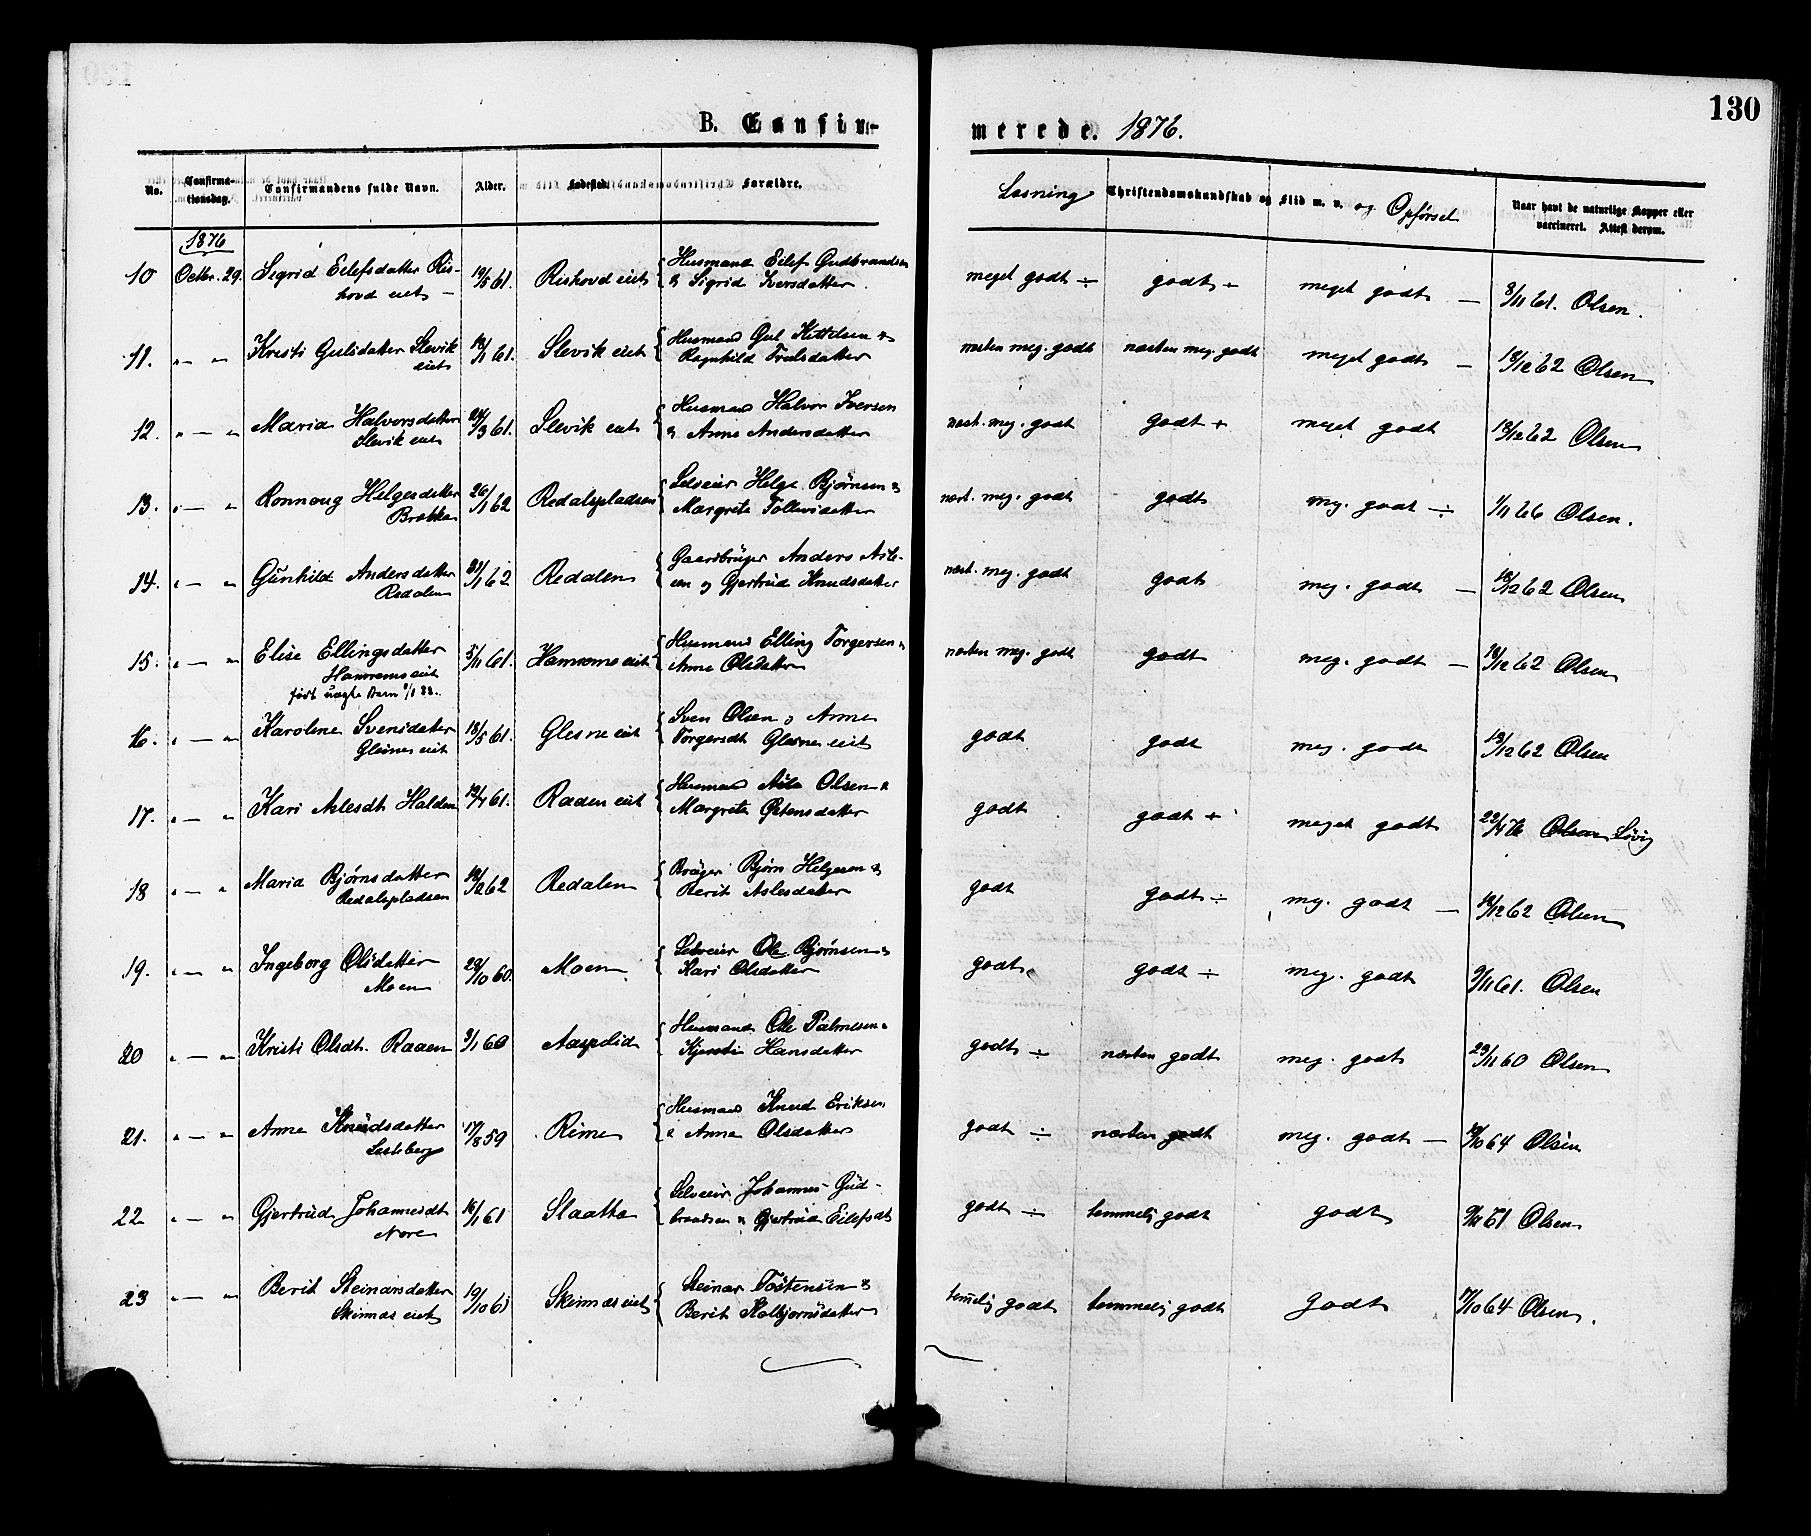 130
B. Confir-
merede. 1876.
No.
Confirma-
tionsdag.
Confirmandens fulde Navn.
Alder.
Fødested.
Forældre.
Læsning
Christendomskundskab og Flid m. v. og Opførsel
Naar havt de naturlige Kopper eller
vaccineret. Attest derom.
1876
10 Octbr. 29. Sigrid Eilefsdatter Ris-
hovd eiet
19/5 61. Rishovd eiet
Husmand Eilef Gudbrandsen
& Sigrid Iversdatter
meget godt ÷ godt ÷ meget godt — 8/11 61. Olsen.
11. " — " Kristi Gulsdatter Slevik
eiet
61. Slevik eiet
Husmand Gul Kittelsen &
Ragnhild Trulsdatter
næsten meg. godt næsten meg. godt meget godt — 18/12 62 Olsen
12. " — " Maria Halvorsdatter
Slevik eiet
24/3 61. Slevik eiet
Husmand Halvor Iversen
& Anne Andersdatter
næst. meg. godt godt + meget godt 13/12 62 Olsen
13. " — " Ronnaug Helgesdatter
Brække
26/1 62 Redalspladsen
Selveier Helge Bjørnsen &
Margrete Tollevsdatter
næst. meg. godt godt meg. godt ÷ 1/11 66 Olsen.
14. " — " Gunhild Andersdatter
Redalen
31/1 62 Redalen
Gaardbruger Anders Asle-
sen og Gjertrud Knudsdatter
næst. meg. godt godt meg. godt — 18/12 62 Olsen
15. " — " Elise Ellingsdatter
Hamremseiet
født uægte Barn
5/11 61. Hamremseiet
Husmand Elling Torgersen &
Anne Olsdatter
næsten meg. godt godt meg. godt — 18/12 62 Olsen
16. " — " Karoline Svensdatter
Glesne eiet
18/5 61. Glesne eiet
Sven Olsen og Anne
Torgersdt Glesne eiet
godt godt meg. godt 13/12 62 Olsen
17. " — " Kari Aslesdt Halden
61. Raaen eiet
Husmand Asle Olsen &
Margrete Østensdatter
godt godt + meget godt 22/4 76 Olsen Løvig
18 " — " Maria Bjørnsdatter
Redalspladsen
62 Redalen
Bruger Bjørn Helgesen &
Berit Aslesdatter
godt godt ÷ meg. godt — 18/12 62 Olsen
19. " — " Ingeborg Olsdatter
Moen
29/10 60. Moen
Selveier Ole Bjørnsen &
Kari Olsdatter
godt godt ÷ meg. godt 9/11 61. Olsen
20 " — " Kristi Olsdt. Raaen
3/1 60 Aaspelid
Husmand Ole Palmesen &
Kjersti Hansdatter
godt ÷ næsten godt meg. godt 23/11 60 Olsen
21. " — " Anne Knudsdatter
Lesteberg
17/8 59 Rime
Husmand Knud Eriksen
& Anne Olsdatter
godt ÷ næsten godt meg. godt — 64 Olsen
22 " — " Gjertrud Johannesdt
Nore
16/1 61 Slaatto
Selveier Johannes Gud-
brandsen & Gjertrud Eilefsdt
godt ÷ temmelig godt godt 9/11 61 Olsen
23 " — " Berit Steinarsdatter
Skinnæs eiet
19/10 61 Skinnæseiet
Steinar Tostensen &
Berit Kolbjørnsdatter
temmelig godt temmelig godt godt 17/10 64 Olsen.